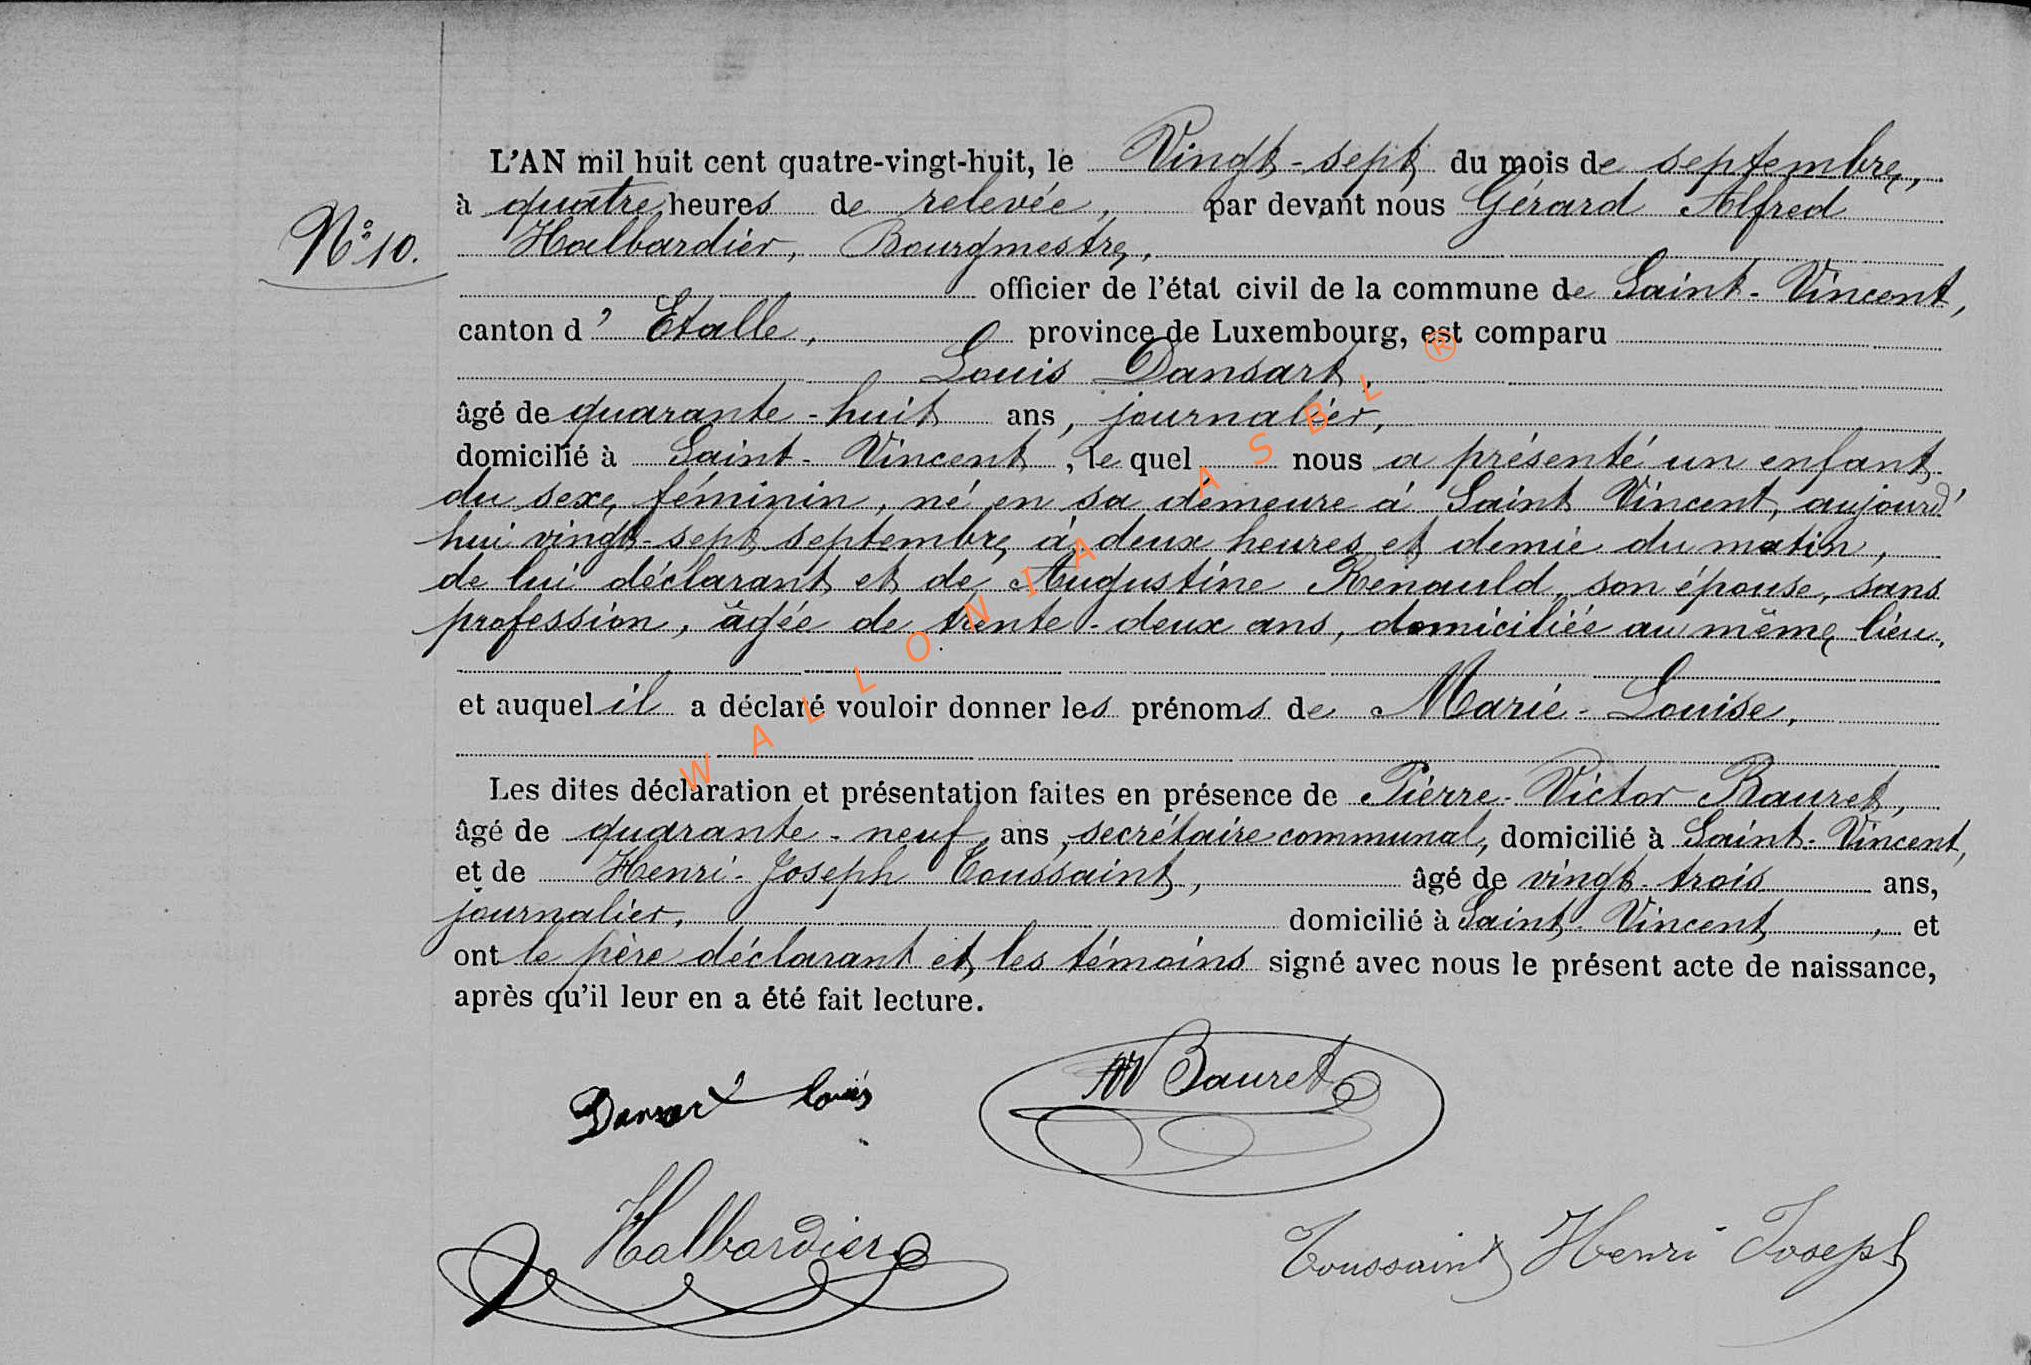 L'AN mil huit cent quatre-vingt-huit, le Vingt-sept du mois de septembre,
à quatre heures de relevée, par devant nous Gérard Alfred
N° 10.
Halbardier, Bourgmestre,
officier de l'état civil de la commune de Saint-Vincent,
canton d'Etalle, province de Luxembourg, est comparu
Louis Dansart,
âgé de quarante-huit ans, journalier,
domicilié à Saint-Vincent, lequel nous a présenté un enfant
du sexe féminin, né en sa demeure à Saint Vincent, aujourd'
hui vingt-sept septembre à deux heures et demie du matin,
de lui déclarant et de Augustine Renauld, son épouse, sans
profession, âgée de trente-deux ans, domiciliée au même lieu,
et auquel il a déclaré vouloir donner les prénoms de Marie-Louise,
Les dites déclaration et présentation faites en présence de Pierre-Victor Bauret,
âgé de quarante-neuf ans, secrétaire communal, domicilié à Saint-Vincent,
et de Henri-Joseph Toussaint, âgé de vingt-trois ans,
journalier, domicilié à Saint-Vincent, et
ont le père déclarant et les témoins signé avec nous le présent acte de naissance,
après qu'il leur en a été fait lecture.
Dansart Louis
Bauret
Halbardier
Toussaint Henri Joseph
WALLONIA ASBL ®